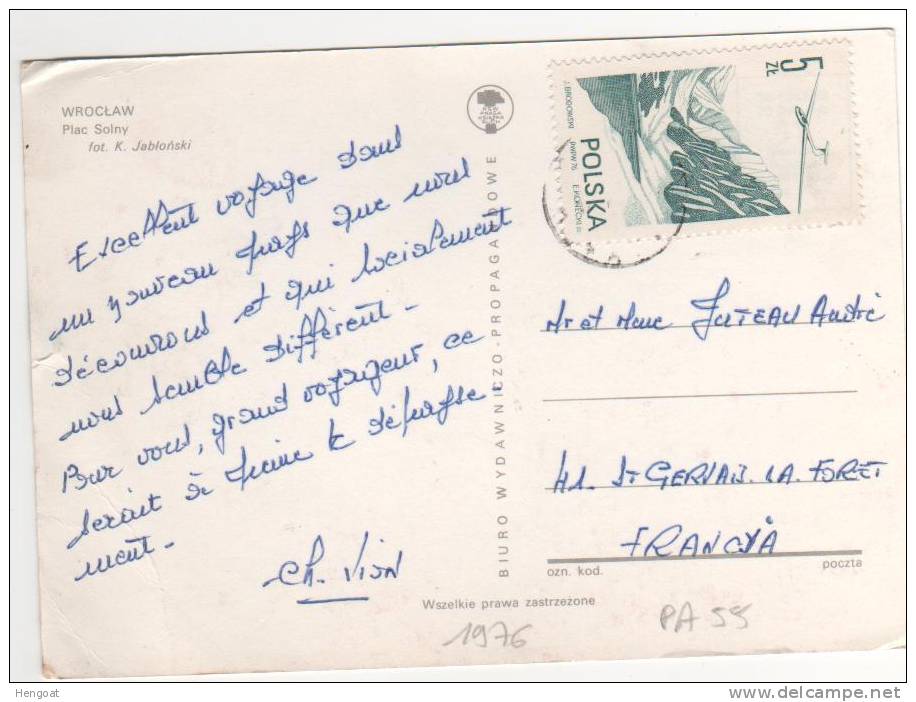 WROCŁAW
Plac Solny
fot. K. Jabłoński
Excellent voyage dans
un nouveau pays que nous
découvrons et qui socialement
nous semble différent.
Pour vous, grand voyageur, ce
serait à peine le dépayse-
ment.
Ch. Vion
BIURO WYDAWNICZO-PROPAGANDOWE
Wszelkie prawa zastrzeżone
1976
5 ZŁ
POLSKA
J. BRODOWSKI
PWPW 76
Mr et Mme JUTEAU André
41. ST GERVAIS. LA. FORET
FRANCJA
ozn. kod.
poczta
PA 55
Hengoat
www.delcampe.net